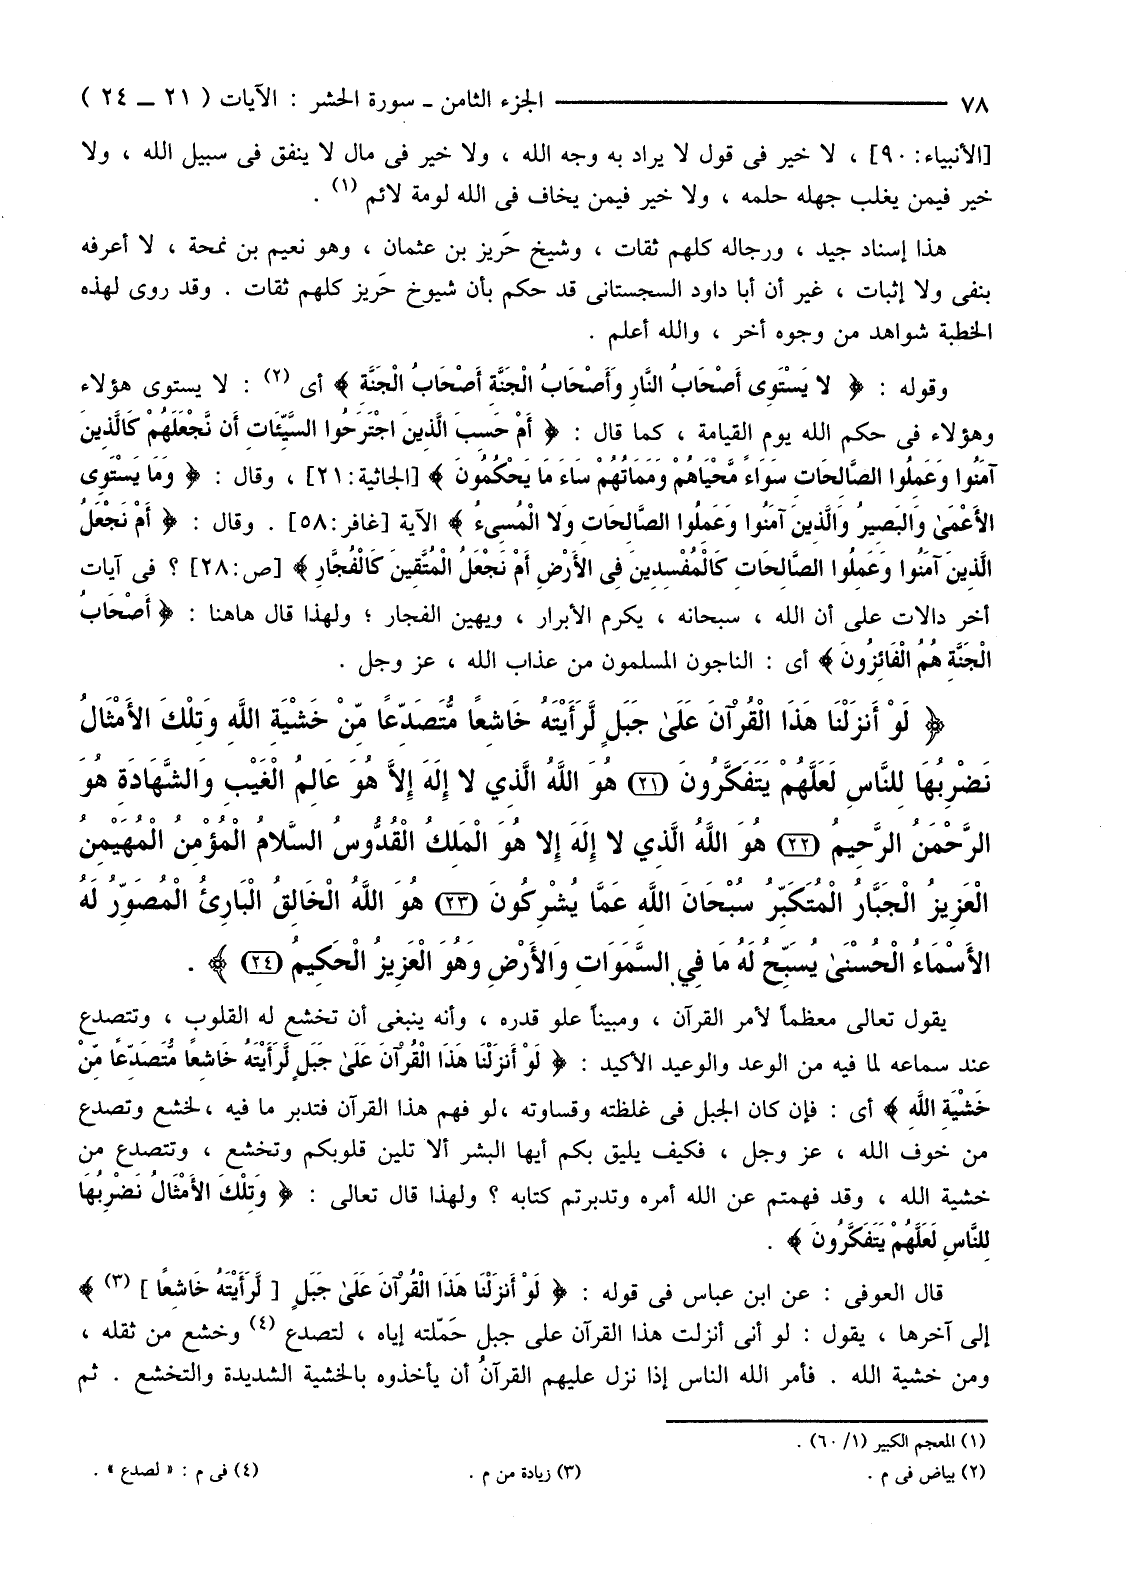 ٧٨ ــــــــــ الجزء الثامن ـ سورة الحشر : الآيات ( ٢١ ــ ٢٤ )
[الأنبياء: ٩٠] ، لا خير فى قول لا يراد به وجه الله ، ولا خير فى مال لا ينفق فى سبيل الله ، ولا
خير فيمن يغلب جهله حلمه ، ولا خير فيمن يخاف فى الله لومة لائم (١) .
هذا إسناد جيد ، ورجاله كلهم ثقات ، وشيخ حَريز بن عثمان ، وهو نعيم بن نمحة ، لا أعرفه
بنفى ولا إثبات ، غير أن أبا داود السجستانى قد حكم بأن شيوخ حَريز كلهم ثقات . وقد روى لهذه
الخطبة شواهد من وجوه أخر ، والله أعلم .
وقوله : ﴿ لا يَسْتَوِي أَصْحَابُ النَّارِ وَأَصْحَابُ الْجَنَّةِ أَصْحَابُ الْجَنَّةِ ﴾ أى (٢) : لا يستوى هؤلاء
وهؤلاء فى حكم الله يوم القيامة ، كما قال : ﴿ أَمْ حَسِبَ الَّذِينَ اجْتَرَحُوا السَّيِّئَاتِ أَن نَّجْعَلَهُمْ كَالَّذِينَ
آمَنُوا وَعَمِلُوا الصَّالِحَاتِ سَوَاءً مَّحْيَاهُمْ وَمَمَاتُهُمْ سَاءَ مَا يَحْكُمُونَ ﴾ [الجاثية: ٢١] ، وقال : ﴿ وَمَا يَسْتَوِي
الأَعْمَىٰ وَالْبَصِيرُ وَالَّذِينَ آمَنُوا وَعَمِلُوا الصَّالِحَاتِ وَلا الْمُسِيءُ ﴾ الآية [غافر: ٥٨] . وقال : ﴿ أَمْ نَجْعَلُ
الَّذِينَ آمَنُوا وَعَمِلُوا الصَّالِحَاتِ كَالْمُفْسِدِينَ فِي الأَرْضِ أَمْ نَجْعَلُ الْمُتَّقِينَ كَالْفُجَّارِ ﴾ [ص: ٢٨] ؟ فى آيات
أخر دالات على أن الله ، سبحانه ، يكرم الأبرار ، ويهين الفجار ؛ ولهذا قال هاهنا : ﴿ أَصْحَابُ
الْجَنَّةِ هُمُ الْفَائِزُونَ ﴾ أى : الناجون المسلمون من عذاب الله ، عز وجل .
﴿ لَوْ أَنزَلْنَا هَذَا الْقُرْآنَ عَلَىٰ جَبَلٍ لَّرَأَيْتَهُ خَاشِعًا مُّتَصَدِّعًا مِّنْ خَشْيَةِ اللَّهِ وَتِلْكَ الأَمْثَالُ
نَضْرِبُهَا لِلنَّاسِ لَعَلَّهُمْ يَتَفَكَّرُونَ (٢١) هُوَ اللَّهُ الَّذِي لا إِلَهَ إِلاَّ هُوَ عَالِمُ الْغَيْبِ وَالشَّهَادَةِ هُوَ
الرَّحْمَنُ الرَّحِيمُ (٢٢) هُوَ اللَّهُ الَّذِي لا إِلَهَ إِلا هُوَ الْمَلِكُ الْقُدُّوسُ السَّلامُ الْمُؤْمِنُ الْمُهَيْمِنُ
الْعَزِيزُ الْجَبَّارُ الْمُتَكَبِّرُ سُبْحَانَ اللَّهِ عَمَّا يُشْرِكُونَ (٢٣) هُوَ اللَّهُ الْخَالِقُ الْبَارِئُ الْمُصَوِّرُ لَهُ
الأَسْمَاءُ الْحُسْنَىٰ يُسَبِّحُ لَهُ مَا فِي السَّمَوَاتِ وَالأَرْضِ وَهُوَ الْعَزِيزُ الْحَكِيمُ (٢٤) ﴾ .
يقول تعالى معظماً لأمر القرآن ، ومبيناً علو قدره ، وأنه ينبغى أن تخشع له القلوب ، وتتصدع
عند سماعه لما فيه من الوعد والوعيد الأكيد : ﴿ لَوْ أَنزَلْنَا هَذَا الْقُرْآنَ عَلَىٰ جَبَلٍ لَّرَأَيْتَهُ خَاشِعًا مُّتَصَدِّعًا مِّنْ
خَشْيَةِ اللَّهِ ﴾ أى : فإن كان الجبل فى غلظته وقساوته ، لو فهم هذا القرآن فتدبر ما فيه ، لخشع وتصدع
من خوف الله ، عز وجل ، فكيف يليق بكم أيها البشر ألا تلين قلوبكم وتخشع ، وتتصدع من
خشية الله ، وقد فهمتم عن الله أمره وتدبرتم كتابه ؟ ولهذا قال تعالى : ﴿ وَتِلْكَ الأَمْثَالُ نَضْرِبُهَا
لِلنَّاسِ لَعَلَّهُمْ يَتَفَكَّرُونَ ﴾ .
قال العوفى : عن ابن عباس فى قوله : ﴿ لَوْ أَنزَلْنَا هَذَا الْقُرْآنَ عَلَىٰ جَبَلٍ [ لَّرَأَيْتَهُ خَاشِعًا ] (٣) ﴾
إلى آخرها ، يقول : لو أنى أنزلت هذا القرآن على جبل حَمّلته إياه ، لتصدع (٤) وخشع من ثقله ،
ومن خشية الله . فأمر الله الناس إذا نزل عليهم القرآنُ أن يأخذوه بالخشية الشديدة والتخشع . ثم
(١) المعجم الكبير (١/ ٦٠) .
(٢) بياض فى م . (٣) زيادة من م . (٤) فى م : « لصدع » .